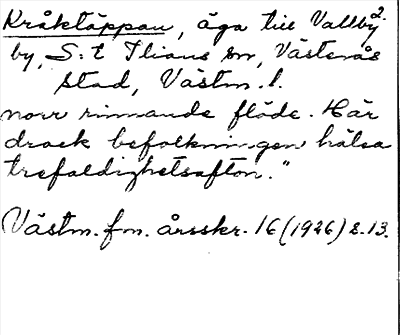 Kråktäppan, äga till Vallby 2.
by, S:t Ilians sn, Västerås
stad, Västm. l.
norr rinnande flöde. Här
drack befolkningen hälsa
trefaldighetsafton."
Västm. fm. årsskr. 16 (1926) s. 13.